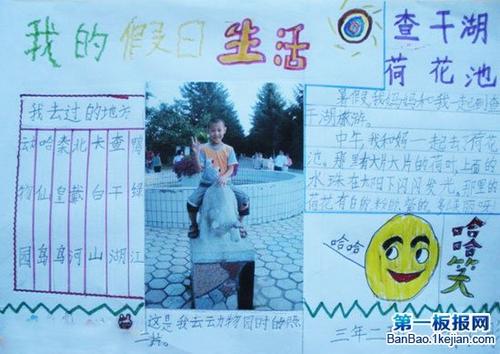 我的假日生活
查干湖
荷花池
我去过的地方
动物园
哈仙岛
秦皇岛
北戴河
长白山
查干湖
鸭绿江
暑假我妈妈和我一起到查
干湖旅游。
中午,我和妈一起去荷花
池。那里大片大片的荷叶,上面的
水珠在太阳下闪闪发光。那里的
荷花有白的粉的紫的
哈哈
哈哈笑
这是我去动物园时的照
片。
三年二
第一板报网
BanBao.1kejian.com